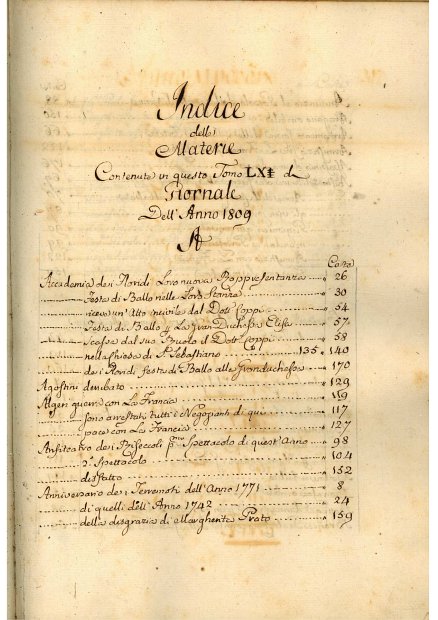 Indice
delle
Materie
Contenute in questo Tomo LXX di
Giornale
Dell' Anno 1809
A
Carte
Accademia dei Floridi Loro nuova Rappresentanza 26
Festa di Ballo nelle Loro Stanze 30
riceve un' Atto incivile dal Dott. Coppi 54
Festa di Ballo p. La Gran Duchessa Elisa 57
scassa dal suo Ruolo il Dott. Coppi 58
nella chiesa di S. Sebastiano 135. 140
dei Floridi festa di Ballo alla Granduchessa 170
Agostini derubato 129
Algeri guerra con La Francia 119
sono arrestati tutti i Negozianti di qui 117
pace con La Francia 127
Anfiteatro dei primo Spettacolo di quest' Anno 98
2.o Spettacolo 104
disfatto 152
Anniversario dei Terremoti dell' Anno 1771 8
di quelli dell' Anno 1742 24
della disgrazia di Margherita Prato 159